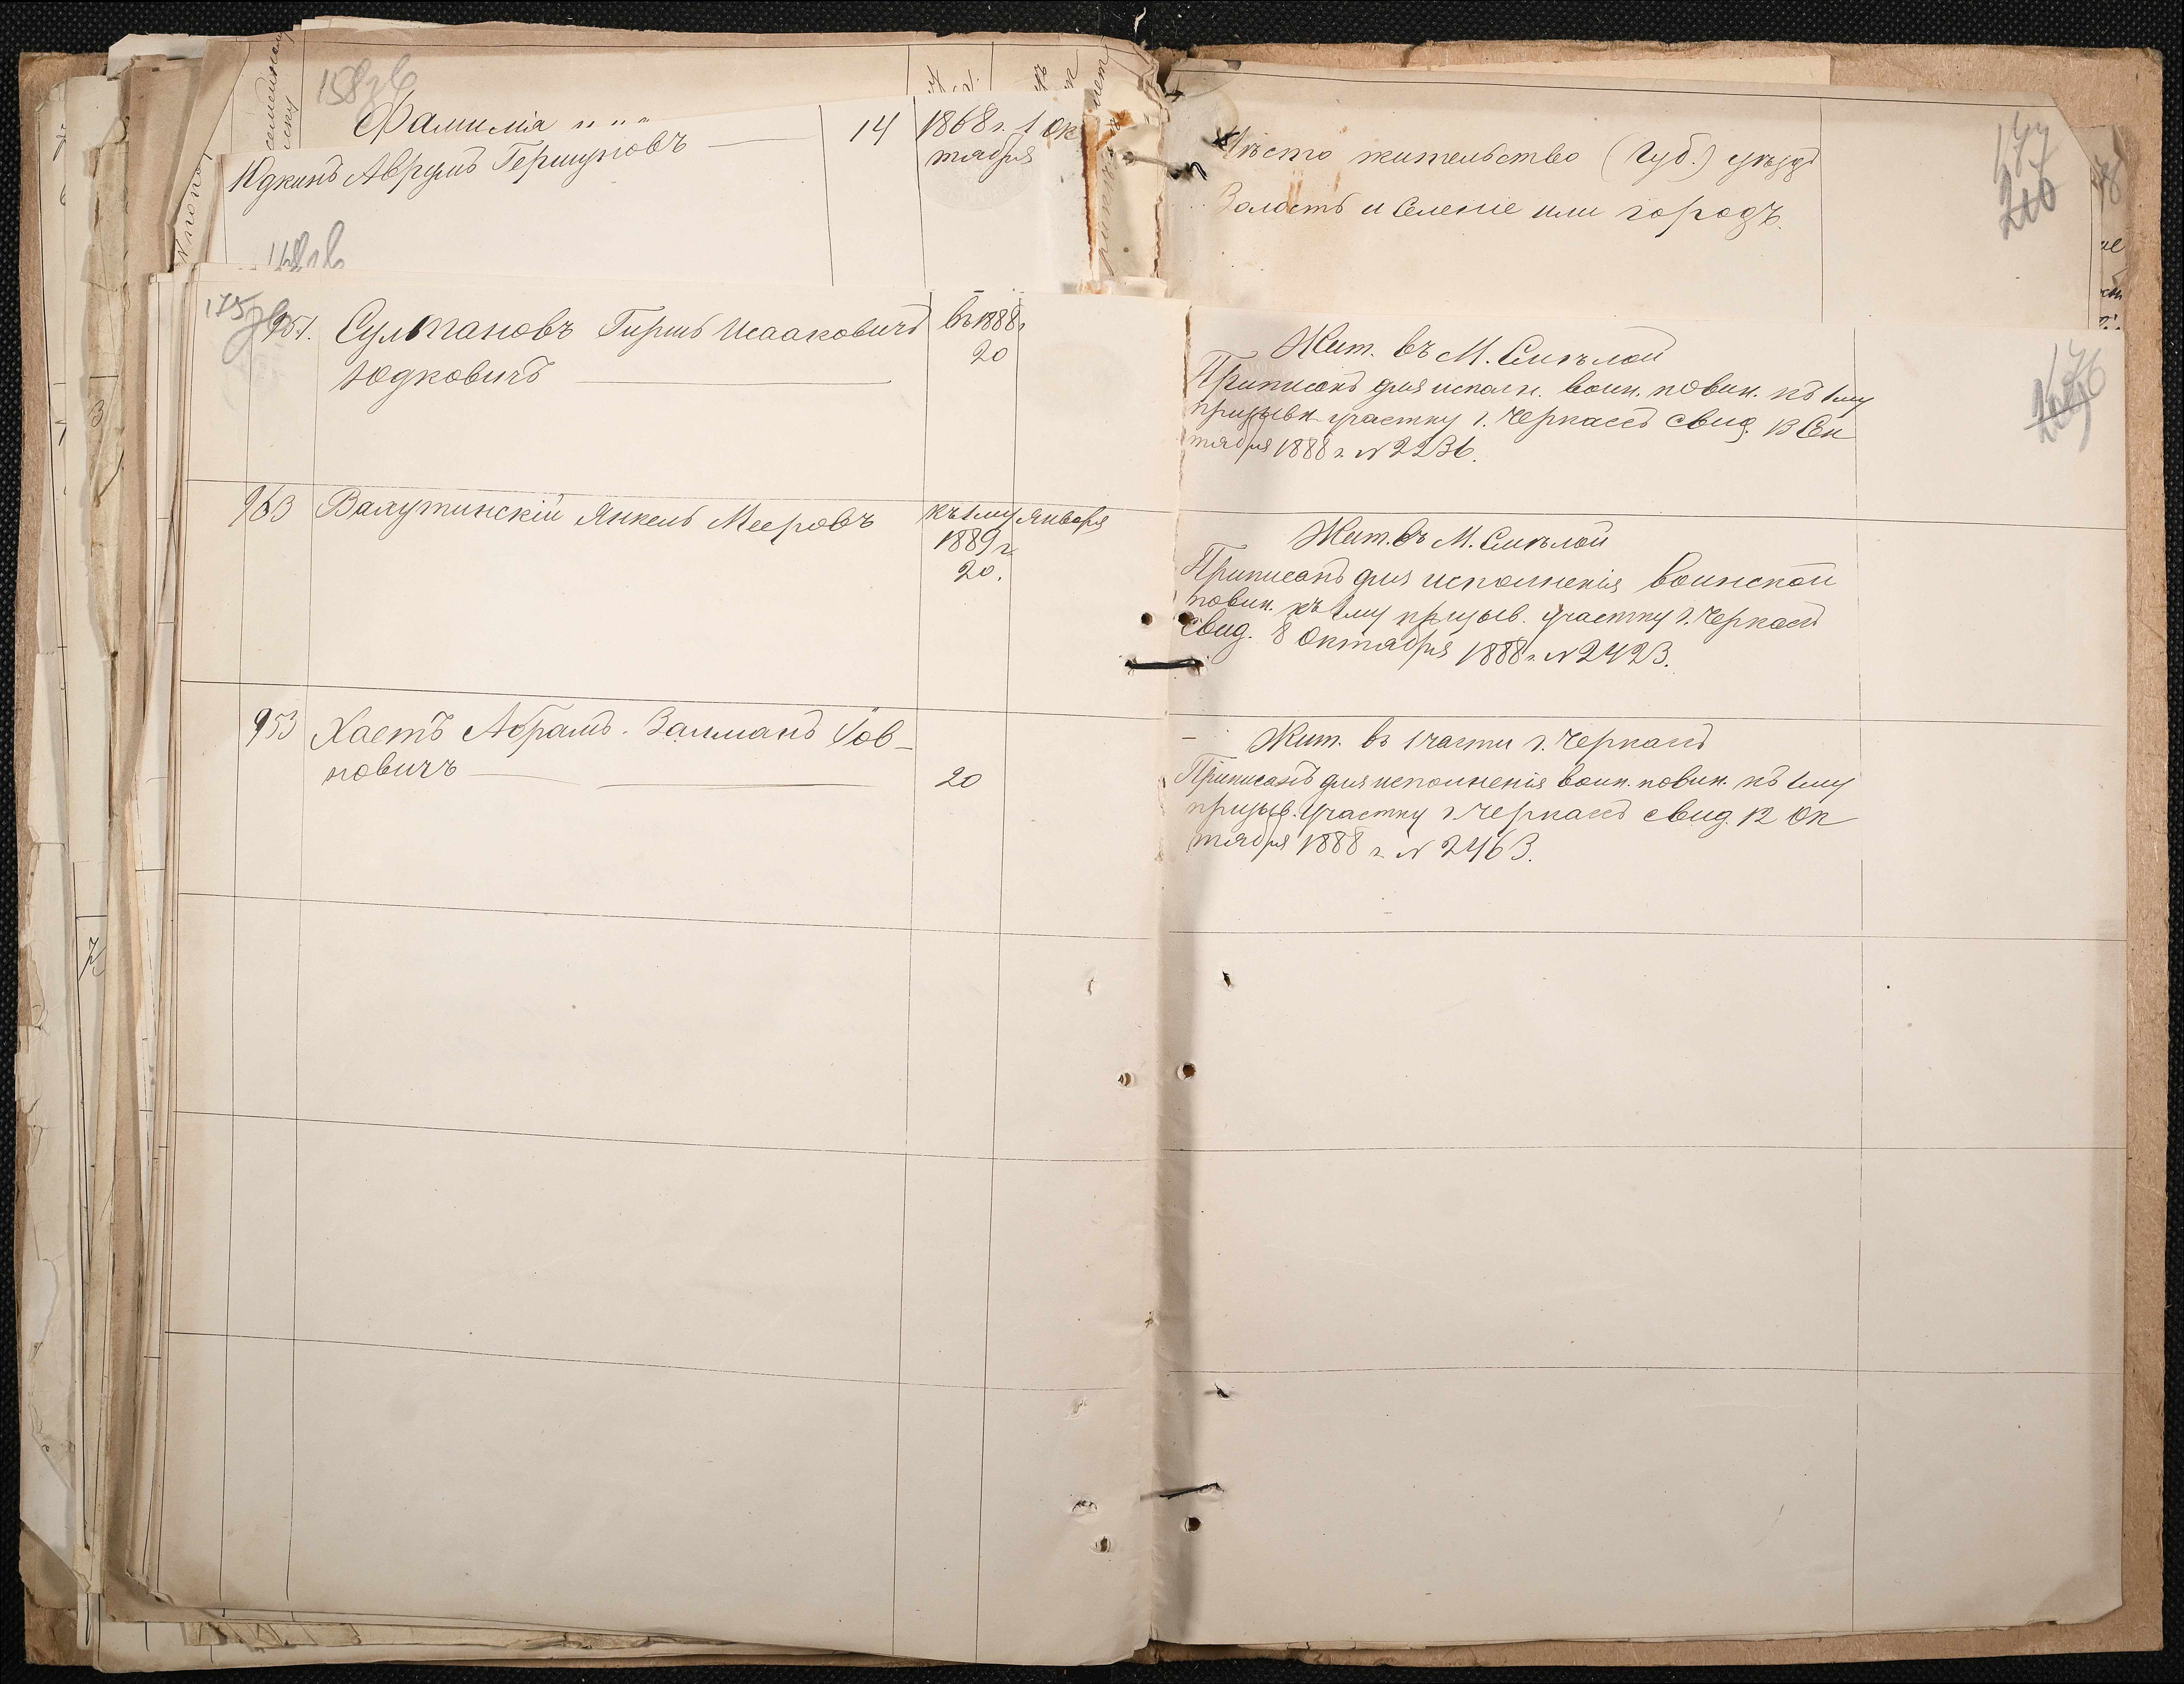 158зв
Фамилія " " "
14
1868 г. 1 Ок
тября
Юдкинъ Аврумъ Гершуновъ
Мѣсто жительство (Губ.) уѣздъ
Волость и Селеніе или городъ.
177
158зв
175зв
951. Султановъ Гиршъ Исааковичъ
Юдковичъ
въ 1888 г
20
Жит. въ М. Смѣлой
Приписанъ для исполн. воин. повин. къ 1му
призывн. участку г. Черкассъ свид. 13 Сен
тября 1888 г. N 2236.
176
963 Валутинскій Янкель Мееровъ
къ 1му Января
1889 г
20.
Жит. въ М. Смѣлой
Приписанъ для исполненія воинской
повин. къ 1му призыв. участку г. Черкассъ
свид. 8 Октября 1888 г. N 2423.
953 Хаетъ Абрамъ-Залманъ Іов-
новичъ
20
Жит. въ 1 части г. Черкассъ
Приписанъ для исполненія воин. повин. къ 1му
призыв. участку г. Черкассъ свид. 12 Ок
тября 1888 г. N 2463.